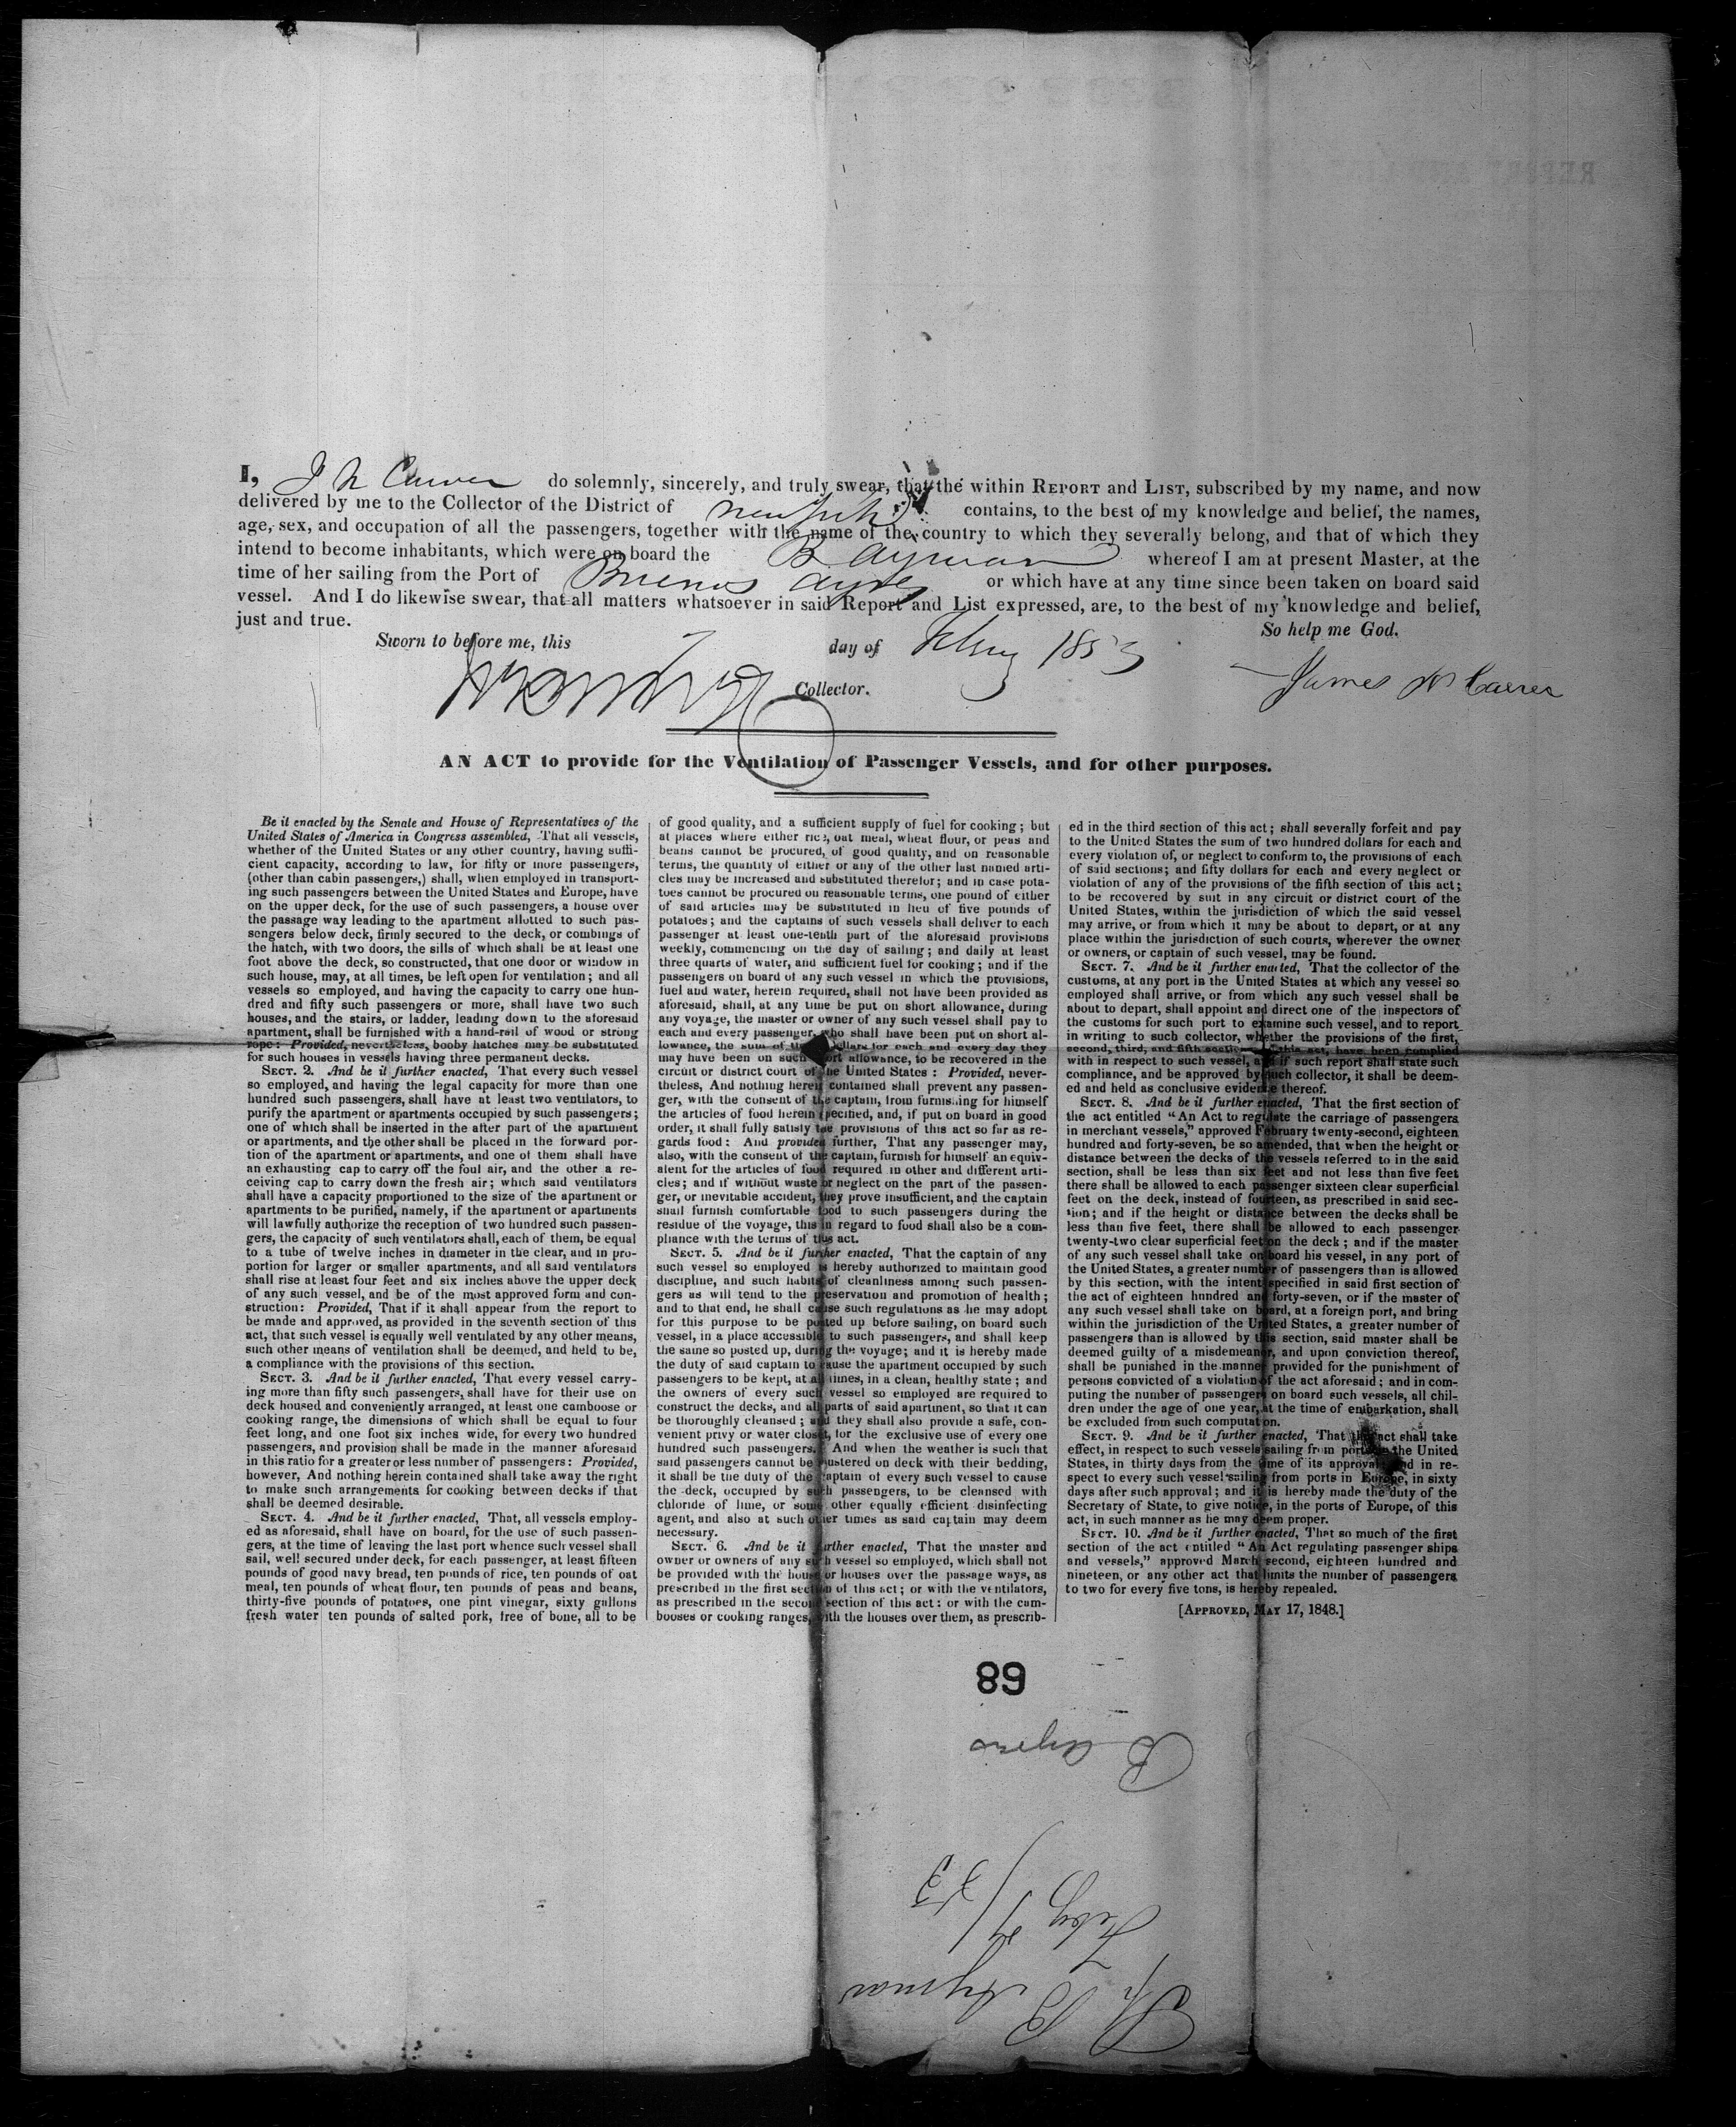 I, J N Carver do solemnly, sincerely, and truly swear, that the within REPORT and LIST, subscribed by my name, and now
delivered by me to the Collector of the District of New York contains, to the best of my knowledge and belief, the names,
age, sex, and occupation of all the passengers, together with the name of the country to which they severally belong, and that of which they
intend to become inhabitants, which were on board the B Aymar whereof I am at present Master, at the
time of her sailing from the Port of Buenos Ayres or which have at any time since been taken on board said
vessel. And I do likewise swear, that all matters whatsoever in said Report and List expressed, are, to the best of my knowledge and belief,
just and true. So help me God.
Sworn to before me, this 7 day of Feby 1853
James N Carver
Collector.
AN ACT to provide for the Ventilation of Passenger Vessels, and for other purposes.
Be it enacted by the Senate and House of Representatives of the
United States of America in Congress assembled, That all vessels,
whether of the United States or any other country, having suffi-
cient capacity, according to law, for fifty or more passengers,
(other than cabin passengers,) shall, when employed in transport-
ing such passengers between the United States and Europe, have
on the upper deck, for the use of such passengers, a house over
the passage way leading to the apartment allotted to such pas-
sengers below deck, firmly secured to the deck, or combings of
the hatch, with two doors, the sills of which shall be at least one
foot above the deck, so constructed, that one door or window in
such house, may, at all times, be left open for ventilation; and all
vessels so employed, and having the capacity to carry one hun-
dred and fifty such passengers or more, shall have two such
houses, and the stairs, or ladder, leading down to the aforesaid
apartment, shall be furnished with a hand-rail of wood or strong
rope: Provided, nevertheless, booby hatches may be substituted
for such houses in vessels having three permanent decks.
SECT. 2. And be it further enacted, That every such vessel
so employed, and having the legal capacity for more than one
hundred such passengers, shall have at least two ventilators, to
purify the apartment or apartments occupied by such passengers;
one of which shall be inserted in the after part of the apartment
or apartments, and the other shall be placed in the forward por-
tion of the apartment or apartments, and one of them shall have
an exhausting cap to carry off the foul air, and the other a re-
ceiving cap to carry down the fresh air; which said ventilators
shall have a capacity proportioned to the size of the apartment or
apartments to be purified, namely, if the apartment or apartments
will lawfully authorize the reception of two hundred such passen-
gers, the capacity of such ventilators shall, each of them, be equal
to a tube of twelve inches in diameter in the clear, and in pro-
portion for larger or smaller apartments, and all said ventilators
shall rise at least four feet and six inches above the upper deck
of any such vessel, and be of the most approved form and con-
struction: Provided, That if it shall appear from the report to
be made and approved, as provided in the seventh section of this
act, that such vessel is equally well ventilated by any other means,
such other means of ventilation shall be deemed, and held to be,
a compliance with the provisions of this section.
SECT. 3. And be it further enacted, That every vessel carry-
ing more than fifty such passengers, shall have for their use on
deck housed and conveniently arranged, at least one camboose or
cooking range, the dimensions of which shall be equal to four
feet long, and one foot six inches wide, for every two hundred
passengers, and provision shall be made in the manner aforesaid
in this ratio for a greater or less number of passengers: Provided,
however, And nothing herein contained shall take away the right
to make such arrangements for cooking between decks if that
shall be deemed desirable.
SECT. 4. And be it further enacted, That, all vessels employ-
ed as aforesaid, shall have on board, for the use of such passen-
gers, at the time of leaving the last port whence such vessel shall
sail, well secured under deck, for each passenger, at least fifteen
pounds of good navy bread, ten pounds of rice, ten pounds of oat
meal, ten pounds of wheat flour, ten pounds of peas and beans,
thirty-five pounds of potatoes, one pint vinegar, sixty gallons
fresh water ten pounds of salted pork, free of bone, all to be
of good quality, and a sufficient supply of fuel for cooking; but
at places where either rice, oat meal, wheat flour, or peas and
beans cannot be procured, of good quality, and on reasonable
terms, the quantity of either or any of the other last named arti-
cles may be increased and substituted therefor; and in case pota-
toes cannot be procured on reasonable terms, one pound of either
of said articles may be substituted in lieu of five pounds of
potatoes; and the captains of such vessels shall deliver to each
passenger at least one-tenth part of the aforesaid provisions
weekly, commencing on the day of sailing; and daily at least
three quarts of water, and sufficient fuel for cooking; and if the
passengers on board of any such vessel in which the provisions,
fuel and water, herein required, shall not have been provided as
aforesaid, shall, at any time be put on short allowance, during
any voyage, the master or owner of any such vessel shall pay to
each and every passenger, who shall have been put on short al-
lowance, the sum of three dollars for each and every day they
may have been on such short allowance, to be recovered in the
circuit or district court of the United States: Provided, never-
theless, And nothing herein contained shall prevent any passen-
ger, with the consent of the captain, from furnishing for himself
the articles of food herein specified, and, if put on board in good
order, it shall fully satisfy the provisions of this act so far as re-
gards food: And provided further, That any passenger may,
also, with the consent of the captain, furnish for himself an equiv-
alent for the articles of food required in other and different arti-
cles; and if without waste or neglect on the part of the passen-
ger, or inevitable accident, they prove insufficient, and the captain
shall furnish comfortable food to such passengers during the
residue of the voyage, this in regard to food shall also be a com-
pliance with the terms of this act.
SECT. 5. And be it further enacted, That the captain of any
such vessel so employed is hereby authorized to maintain good
discipline, and such habits of cleanliness among such passen-
gers as will tend to the preservation and promotion of health;
and to that end, he shall cause such regulations as he may adopt
for this purpose to be posted up before sailing, on board such
vessel, in a place accessible to such passengers, and shall keep
the same so posted up, during the voyage; and it is hereby made
the duty of said captain to cause the apartment occupied by such
passengers to be kept, at all times, in a clean, healthy state; and
the owners of every such vessel so employed are required to
construct the decks, and all parts of said apartment, so that it can
be thoroughly cleansed; and they shall also provide a safe, con-
venient privy or water closet, for the exclusive use of every one
hundred such passengers. And when the weather is such that
said passengers cannot be mustered on deck with their bedding,
it shall be the duty of the captain of every such vessel to cause
the deck, occupied by such passengers, to be cleansed with
chloride of lime, or some other equally efficient disinfecting
agent, and also at such other times as said captain may deem
necessary.
SECT. 6. And be it further enacted, That the master and
owner or owners of any such vessel so employed, which shall not
be provided with the house or houses over the passage ways, as
prescribed in the first section of this act; or with the ventilators,
as prescribed in the second section of this act: or with the cam-
booses or cooking ranges, with the houses over them, as prescrib-
ed in the third section of this act; shall severally forfeit and pay
to the United States the sum of two hundred dollars for each and
every violation of, or neglect to conform to, the provisions of each
of said sections; and fifty dollars for each and every neglect or
violation of any of the provisions of the fifth section of this act;
to be recovered by suit in any circuit or district court of the
United States, within the jurisdiction of which the said vessel
may arrive, or from which it may be about to depart, or at any
place within the jurisdiction of such courts, wherever the owner
or owners, or captain of such vessel, may be found.
SECT. 7. And be it further enacted, That the collector of the
customs, at any port in the United States at which any vessel so
employed shall arrive, or from which any such vessel shall be
about to depart, shall appoint and direct one of the inspectors of
the customs for such port to examine such vessel, and to report
in writing to such collector, whether the provisions of the first,
second, third, and fifth sections of this act, have been complied
with in respect to such vessel, and if such report shall state such
compliance, and be approved by such collector, it shall be deem-
ed and held as conclusive evidence thereof.
SECT. 8. And be it further enacted, That the first section of
the act entitled "An Act to regulate the carriage of passengers
in merchant vessels," approved February twenty-second, eighteen
hundred and forty-seven, be so amended, that when the height or
distance between the decks of the vessels referred to in the said
section, shall be less than six feet and not less than five feet
there shall be allowed to each passenger sixteen clear superficial
feet on the deck, instead of fourteen, as prescribed in said sec-
tion; and if the height or distance between the decks shall be
less than five feet, there shall be allowed to each passenger
twenty-two clear superficial feet on the deck; and if the master
of any such vessel shall take on board his vessel, in any port of
the United States, a greater number of passengers than is allowed
by this section, with the intent specified in said first section of
the act of eighteen hundred and forty-seven, or if the master of
any such vessel shall take on board, at a foreign port, and bring
within the jurisdiction of the United States, a greater number of
passengers than is allowed by this section, said master shall be
deemed guilty of a misdemeanor, and upon conviction thereof,
shall be punished in the manner provided for the punishment of
persons convicted of a violation of the act aforesaid; and in com-
puting the number of passengers on board such vessels, all chil-
dren under the age of one year, at the time of embarkation, shall
be excluded from such computation.
SECT. 9. And be it further enacted, That this act shall take
effect, in respect to such vessels sailing from ports in the United
States, in thirty days from the time of its approval; and in re-
spect to every such vessel sailing from ports in Europe, in sixty
days after such approval; and it is hereby made the duty of the
Secretary of State, to give notice, in the ports of Europe, of this
act, in such manner as he may deem proper.
SECT. 10. And be it further enacted, That so much of the first
section of the act entitled "An Act regulating passenger ships
and vessels," approved March second, eighteen hundred and
nineteen, or any other act that limits the number of passengers
to two for every five tons, is hereby repealed.
[APPROVED, MAY 17, 1848.]
89
B Ayres
Feby 7/53
Sh B Aymar